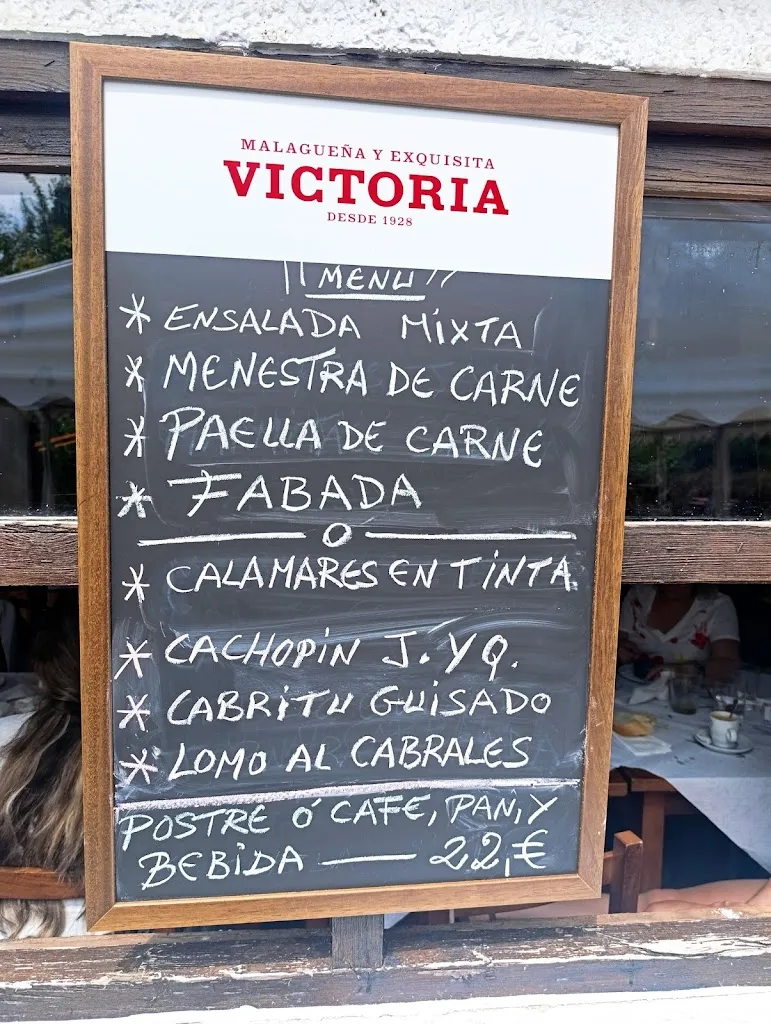 MALAGUEÑA Y EXQUISITA
VICTORIA
DESDE 1928
¡¡ MENU !!
* ENSALADA MIXTA
* MENESTRA DE CARNE
* PAELLA DE CARNE
* FABADA
O
* CALAMARES EN TINTA.
* CACHOPIN J. Y Q.
* CABRITU GUISADO
* LOMO AL CABRALES
POSTRE Ó CAFE, PAN, Y
BEBIDA — 22,€